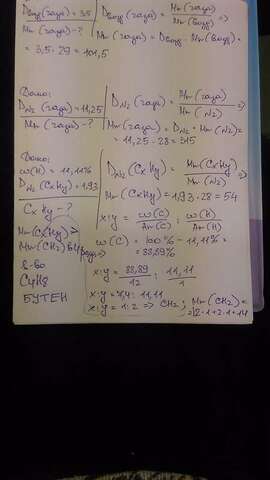 Dвозд(газа)=3,5
Mr(газа)-?
Dвозд(газа) = Mr(газа) / Mr(возд) =>
Mr(газа) = Dвозд · Mr(возд) =
= 3,5 · 29 = 101,5
Дано:
DN2(газа)=11,25
Mr(газа)-?
DN2(газа) = Mr(газа) / Mr(N2) =>
Mr(газа) = DN2 · Mr(N2) =
= 11,25 · 28 = 315
Дано:
w(H) = 11,11%
DN2(CxHy)=1,93
CxHy - ?
DN2(CxHy) = Mr(CxHy) / Mr(N2) =>
Mr(CxHy) = 1,93 · 28 = 54
x:y = w(C) / Ar(C) : w(H) / Ar(H)
w(C) = 100% - 11,11% =
= 88,89%
x:y = 88,89 / 12 : 11,11 / 1
x:y = 7,4 : 11,11
x:y = 1:2 => CH2; Mr(CH2) =
= 12·1+2·1=14
Mr(CxHy) =
Mr(CH2)
в-во
C4H8
БУТЕН